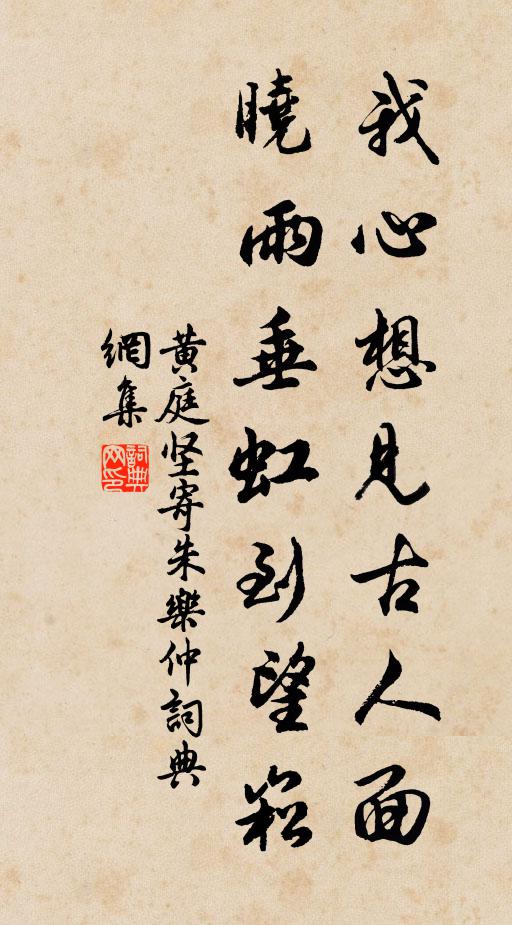 我心想見古人面
曉雨垂虹到望崧
黄庭坚寄朱樂仲詞典
網集
詞典網印